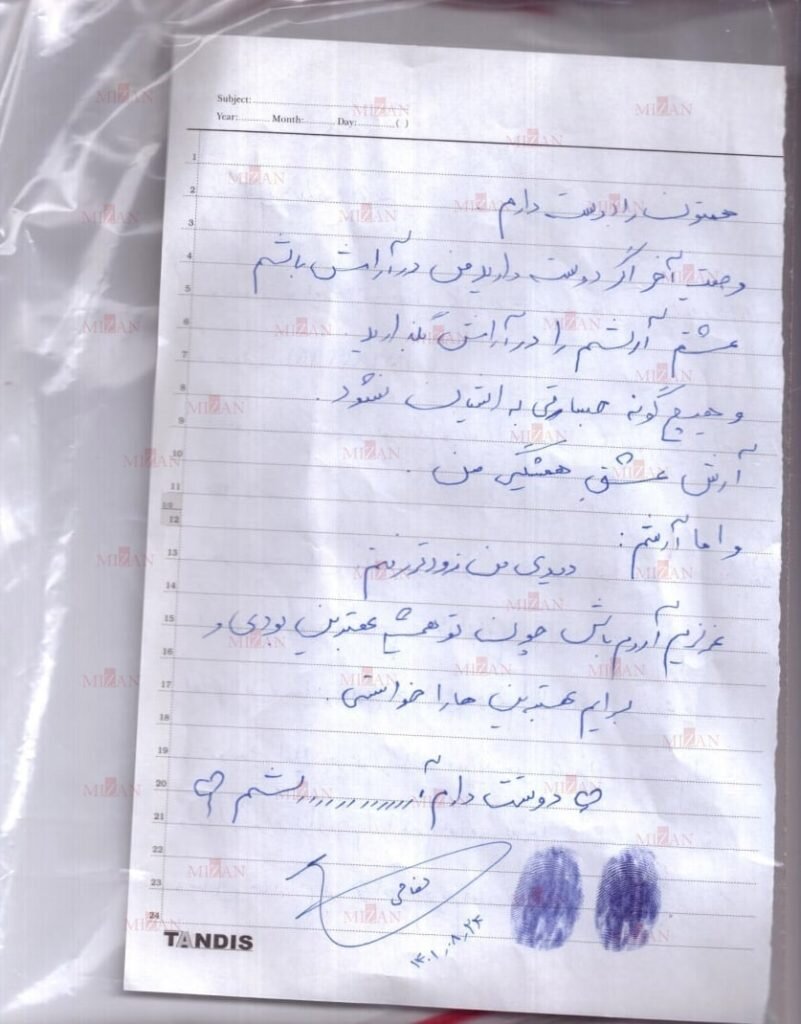 Subject:
Year: Month: Day: ( )
همتون را دوست دارم
وصیت آخر اگر دوست دارید من در آرامش باشم
عشقم آرشم را در آرامش بگذارید.
و هیچ گونه جسارتی به ایشان نشود.
آرش عشق همیشگی من.
و اما آرشم:
دیدی من زودتر رفتم
عزیزم آروم باش چون تو همیشه بهترین بودی و
برایم بهترین ها را خواستی.
♡ دوستت دارم آ............رشم ♡
۱۴۰۱،۰۸،۲۴
1
2
3
4
5
6
7
8
9
10
11
12
13
14
15
16
17
18
19
20
21
22
23
24
TANDIS
MIZAN